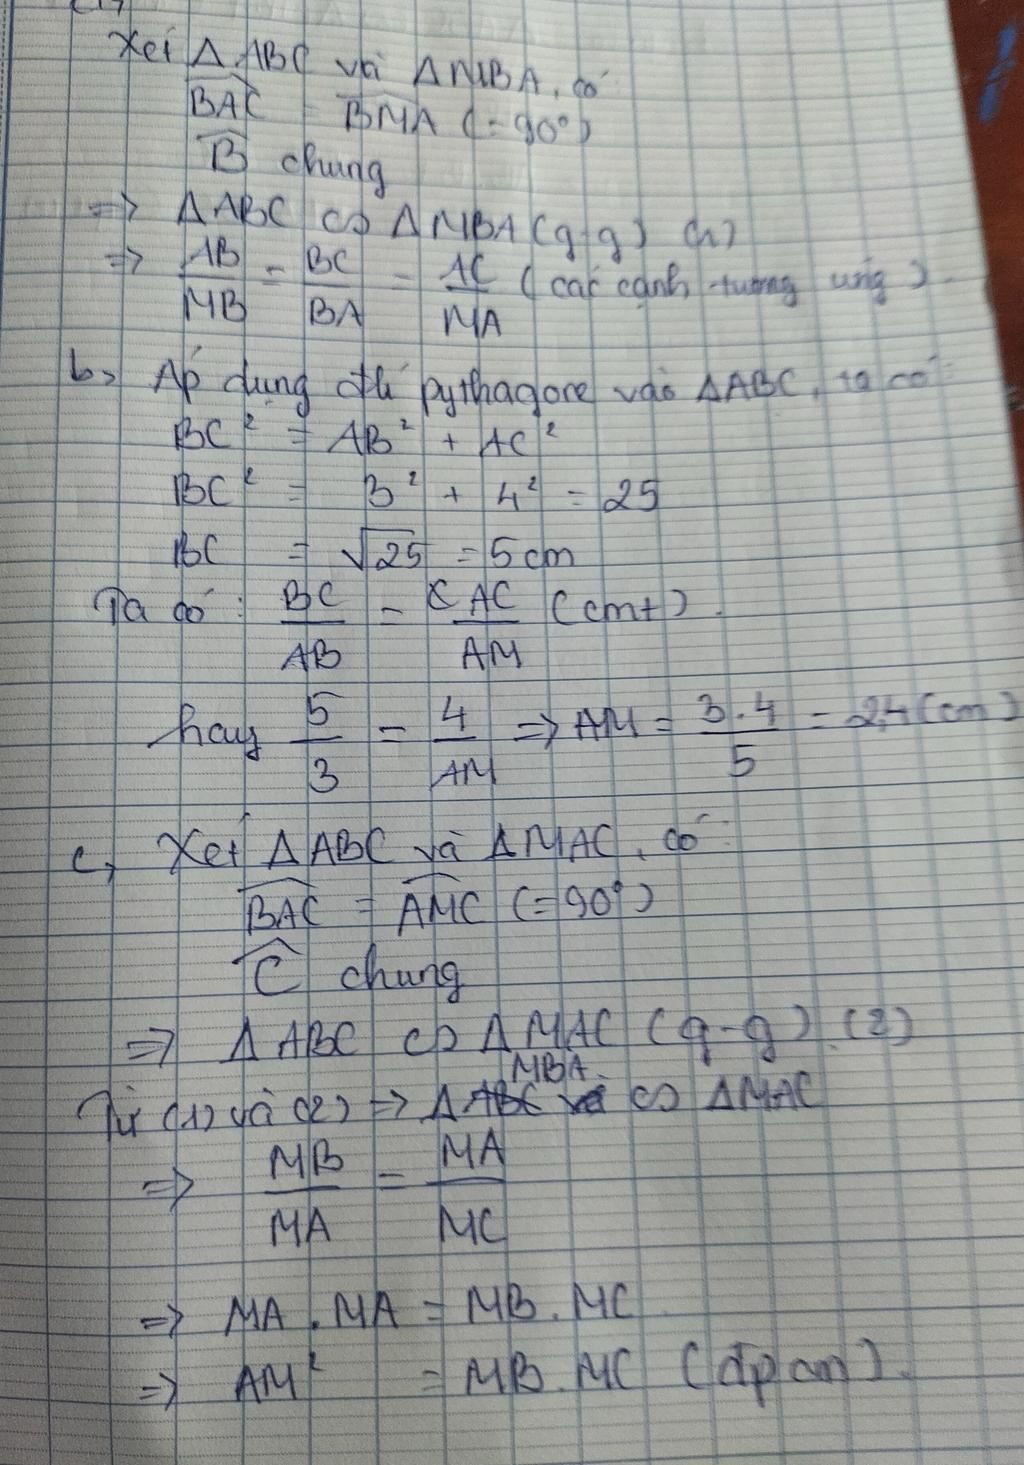 Xét Δ ABC và Δ MBA, có
BAC = BMA (=90°)
B chung
=> Δ ABC ∽ Δ MBA (g-g) (1)
=> AB/MB = BC/BA = AC/MA (các cạnh tương ứng)
b, Áp dụng đlí pythagore vào ΔABC, ta có:
BC² = AB² + AC²
BC² = 3² + 4² = 25
BC = √25 = 5cm
Ta có: BC/AB = AC/AM (cmt).
hay 5/3 = 4/AM => AM = 3.4/5 = 2,4 (cm)
c, Xét Δ ABC và Δ MAC, có:
BAC = AMC (=90°)
C chung
=> Δ ABC ∽ Δ MAC (g-g) (2)
Từ (1) và (2) => Δ MBA ∽ Δ MAC
=> MB/MA = MA/MC
=> MA . MA = MB . MC
=> AM² = MB . MC (đpcm).